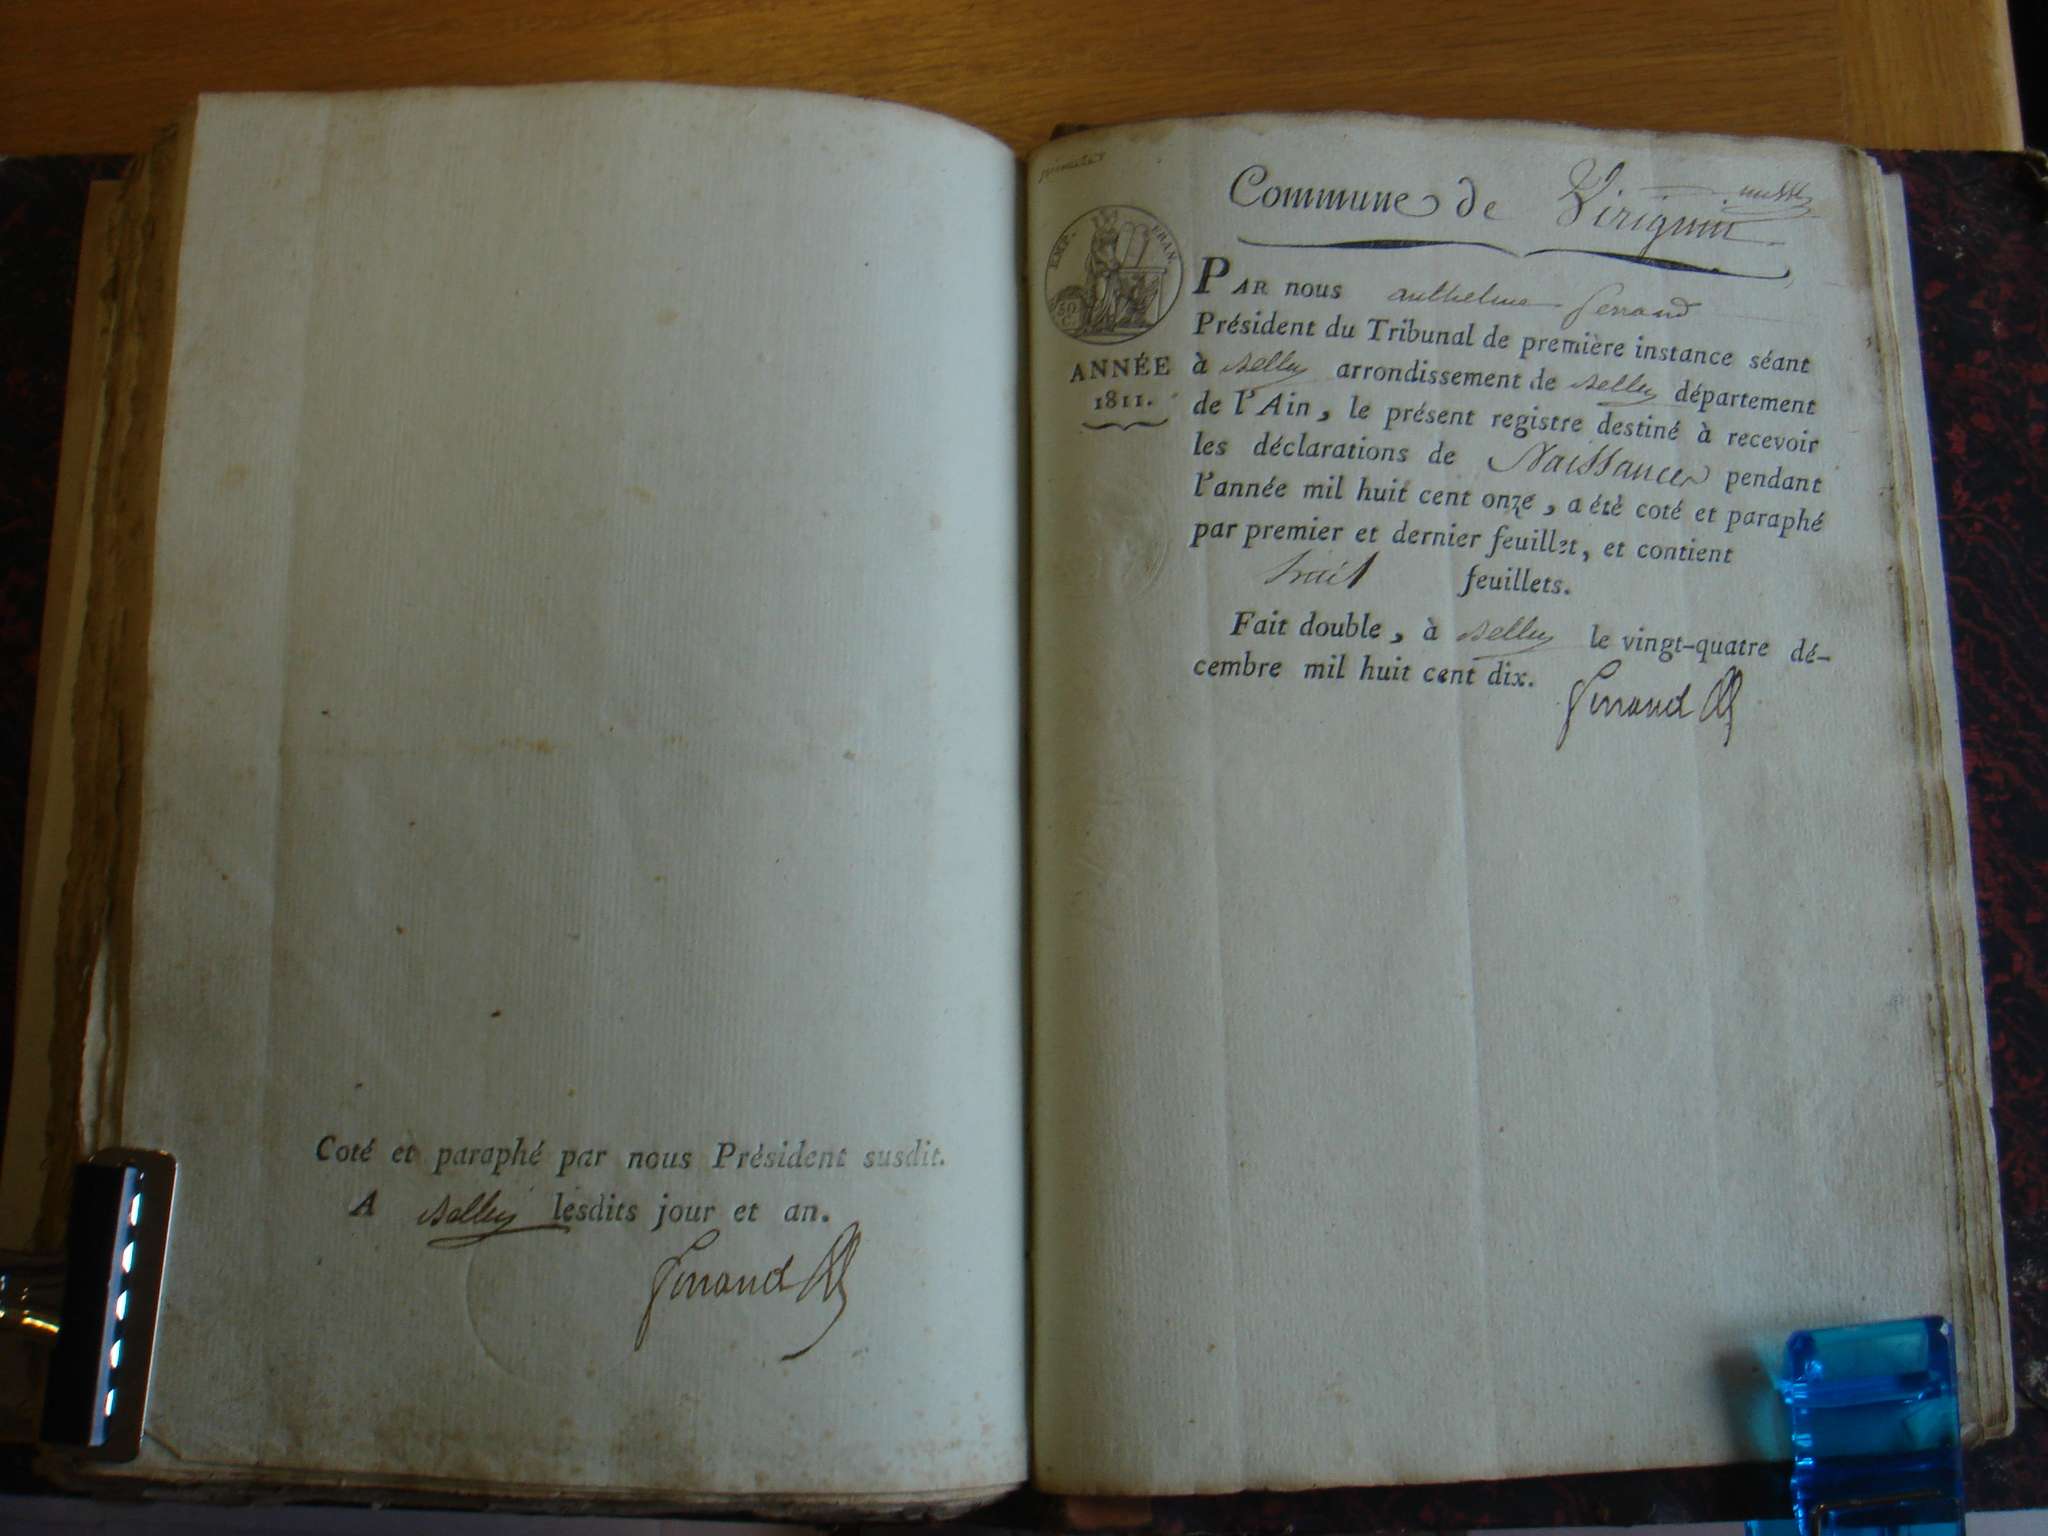 Coté et paraphé par nous Président susdit.
A Belley lesdits jour et an.
Commune de Virignin
EMP. FRAN.
50 C.
ANNÉE
1811.
PAR nous anthelme
Président du Tribunal de première instance séant
à Belley arrondissement de Belley département
de l'Ain, le présent registre destiné à recevoir
les déclarations de Naissances pendant
l'année mil huit cent onze, a étè coté et paraphé
par premier et dernier feuillet, et contient
huit feuillets.
Fait double, à Belley le vingt-quatre dé-
cembre mil huit cent dix.